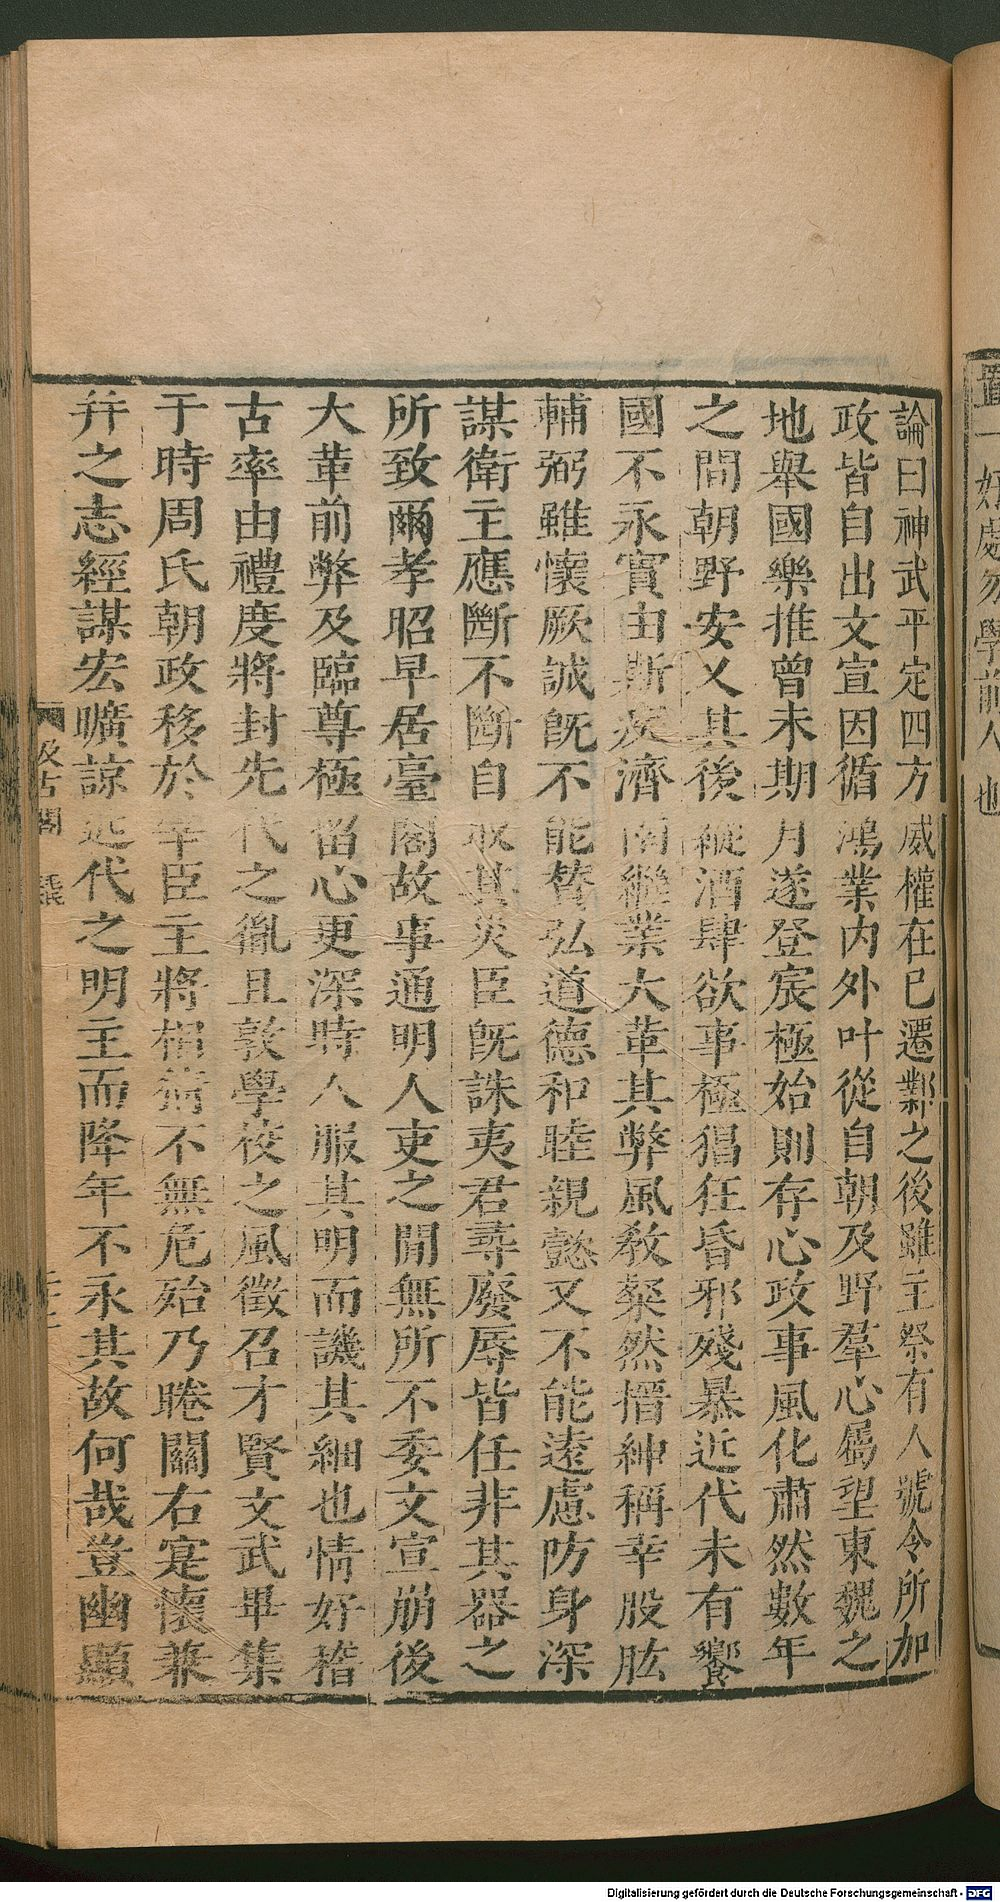 置一好處勿學前人也
論曰神武平定四方威權在已遷鄴之後雖主祭有人號令所加
政皆自出文宣因循鴻業內外叶從自朝及野羣心屬望東魏之
地舉國樂推曾未期月遂登宸極始則存心政事風化肅然數年
之間朝野安乂其後縱酒肆欲事極猖狂昏邪殘暴近代未有饗
國不永實由斯疾濟南繼業大革其弊風教粲然搢紳稱幸股肱
輔弼雖懷厥誠旣不能贊弘道德和睦親懿又不能遠慮防身深
謀衛主應斷不斷自取其災臣旣誅夷君尋廢辱皆任非其器之
所致爾孝昭早居臺閣故事通明人吏之間無所不委文宣崩後
大革前弊及臨尊極留心更深時人服其明而譏其細也情好稽
古率由禮度將封先代之胤且敦學校之風徵召才賢文武畢集
于時周氏朝政移於宰臣主將相猜不無危殆乃睠關右寔懷兼
并之志經謀宏曠諒近代之明主而降年不永其故何哉豈幽顯
汲古閣
Digitalisierung gefördert durch die Deutsche Forschungsgemeinschaft - DFG